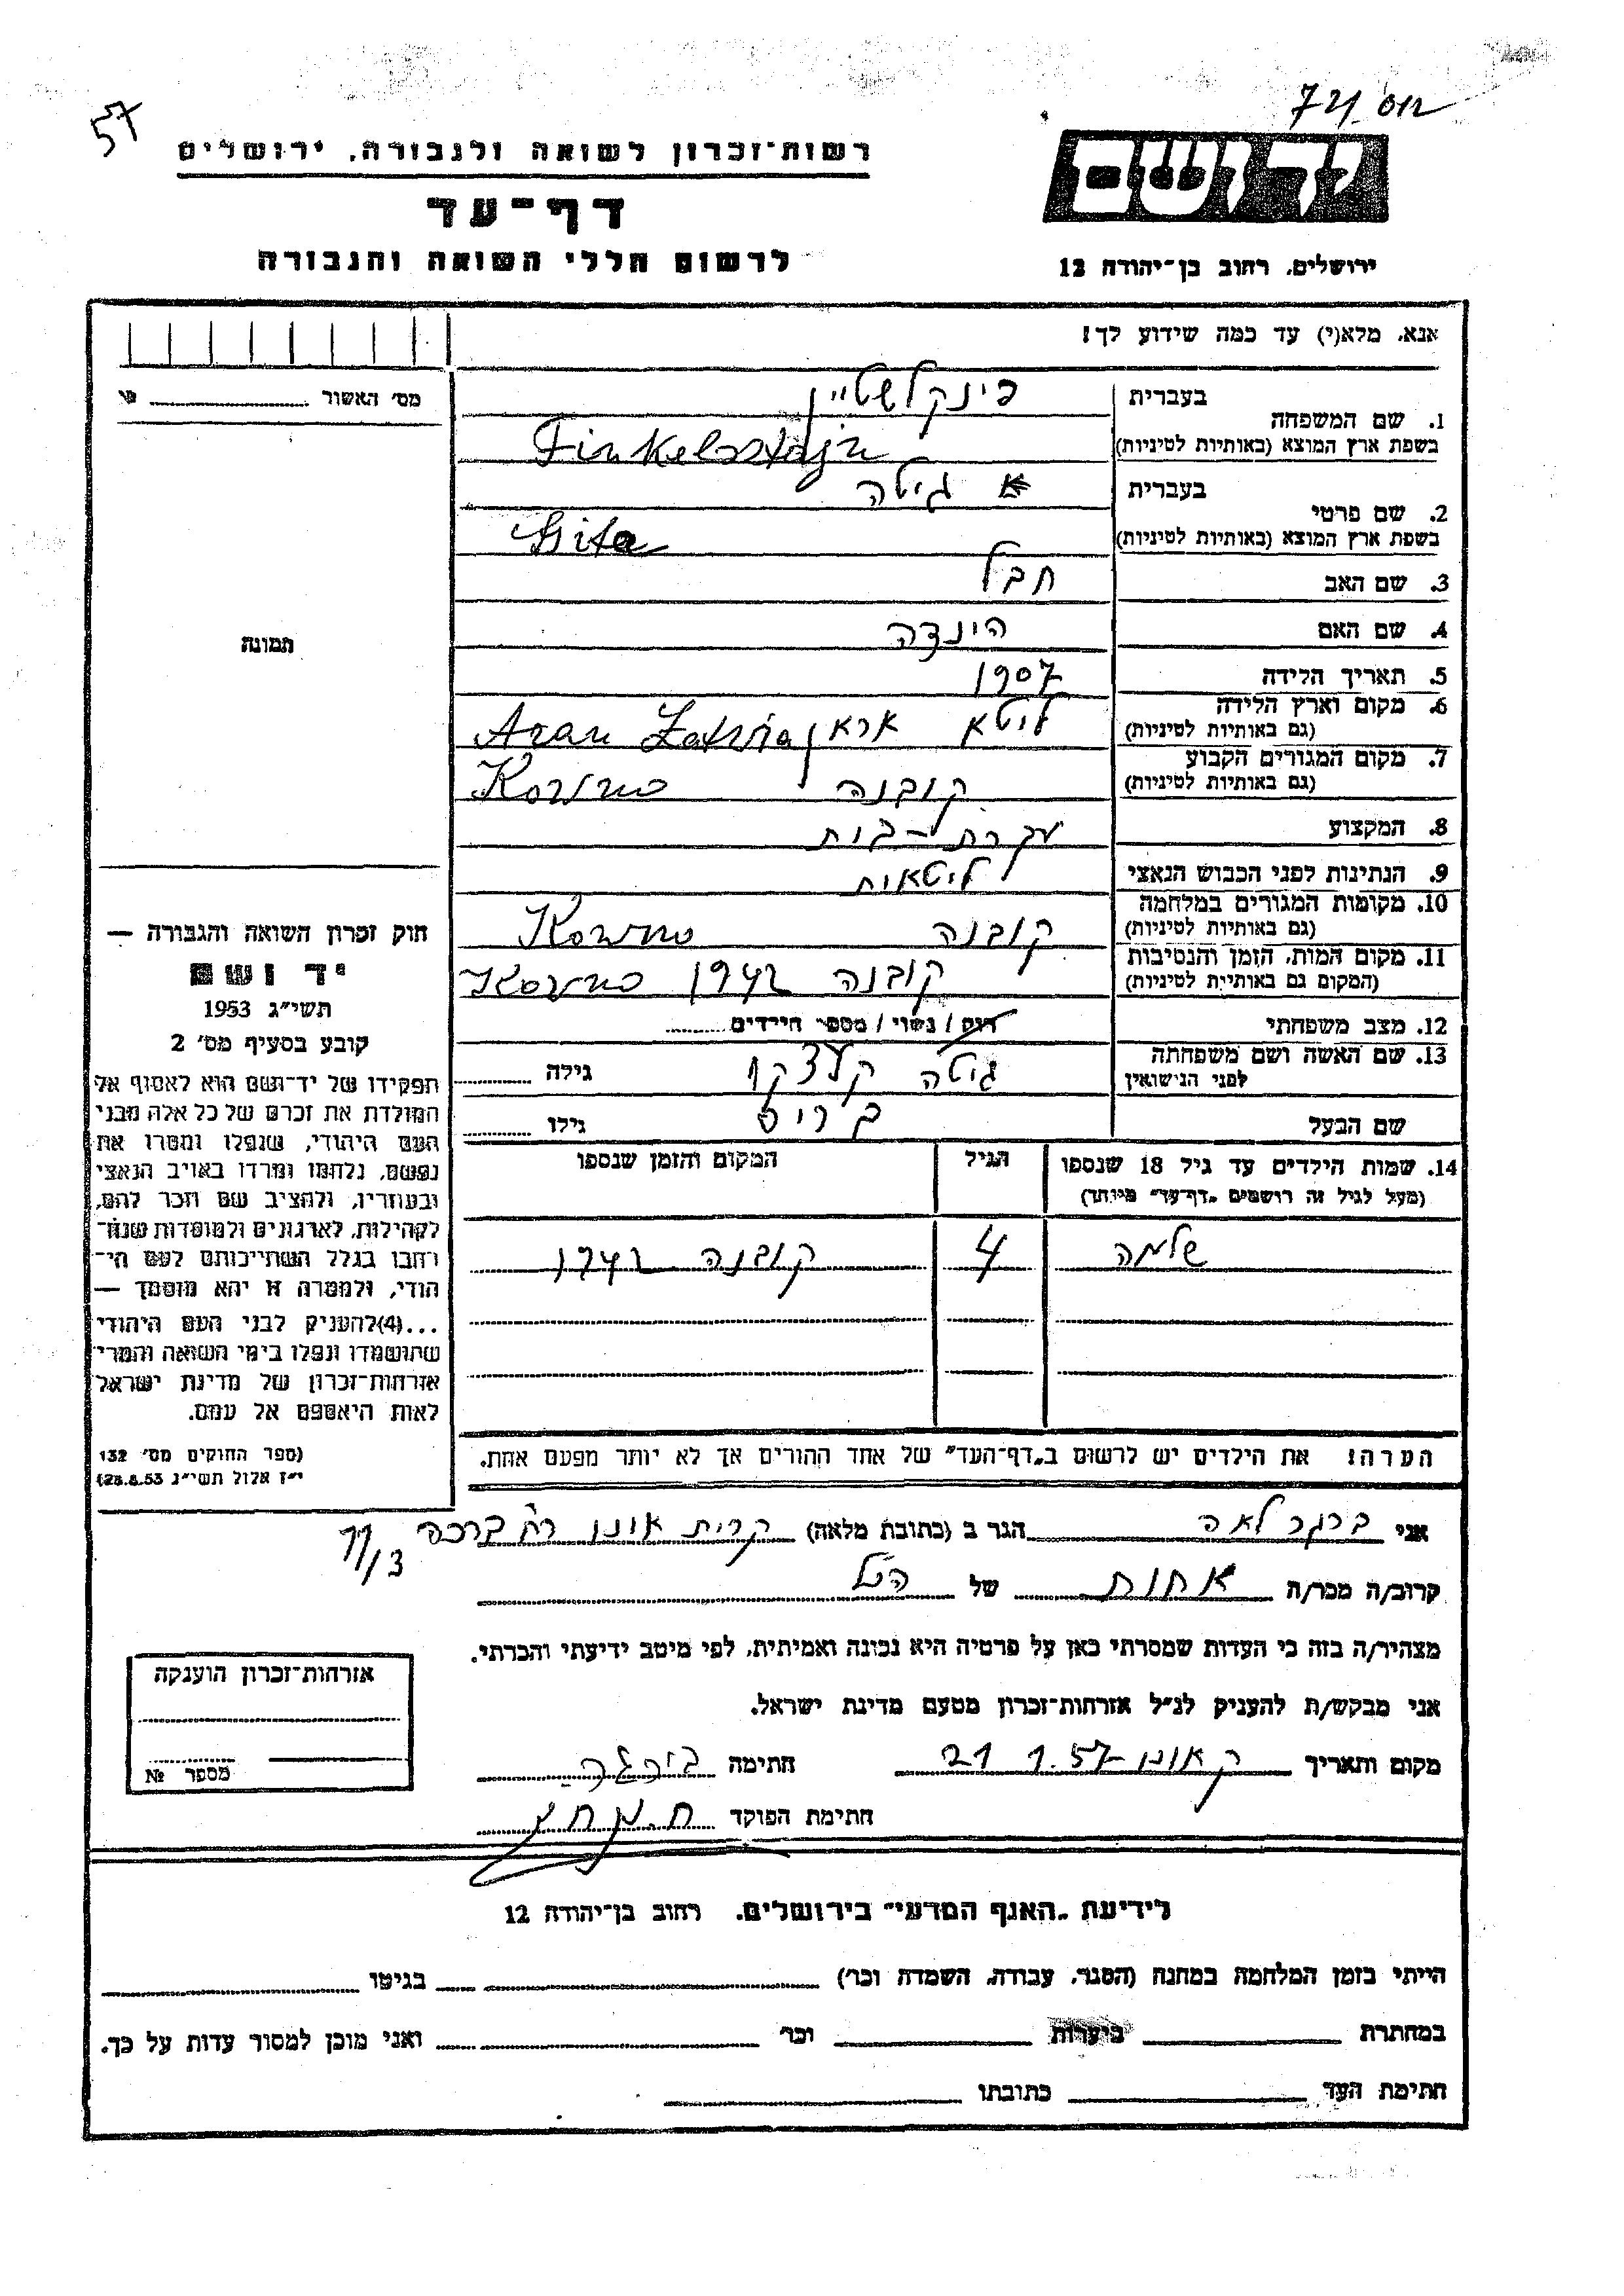 57
רשות־זכרון לשואה ולגבורה, ירושלים
דף־עד
לרשום חללי השואה והגבורה
יד ושם
ירושלים, רחוב בן־יהודה 12
אנא, מלא(י) עד כמה שידוע לך!
מס׳ האשור
תמונה
1. שם המשפחה בעברית פינקלשטיין
בשפת ארץ המוצא (באותיות לטיניות) Finkelsstajn
2. שם פרטי בעברית גיטה
בשפת ארץ המוצא (באותיות לטיניות) Gita
3. שם האב חבל
4. שם האם הינדה
5. תאריך הלידה 1907
6. מקום וארץ הלידה ליטא
(גם באותיות לטיניות)
7. מקום המגורים הקבוע קובנה Kowno
(גם באותיות לטיניות)
8. המקצוע עקרת-בית
9. הנתינות לפני הכבוש הנאצי ליטאית
10. מקומות המגורים במלחמה קובנה Kowno
(גם באותיות לטיניות)
11. מקום המות, הזמן והנסיבות קובנה 1942 Kowno
(המקום גם באותיות לטיניות)
12. מצב משפחתי רווק / נשוי / מספר הילדים
13. שם האשה ושם משפחתה גיטה גילה
לפני הנישואין
שם הבעל גילו
14. שמות הילדים עד גיל 18 שנספו הגיל המקום והזמן שנספו
(מעל לגיל זה רושמים „דף־עד״ מיוחד)
שלמה 4 קובנה 1942
הערה! את הילדים יש לרשום ב„דף־העד״ של אחד ההורים אך לא יותר מפעם אחת.
חוק זכרון השואה והגבורה —
יד ושם
תשי״ג 1953
קובע בסעיף מס׳ 2
תפקידו של יד־ושם הוא לאסוף אל
המולדת את זכרם של כל אלה מבני
העם היהודי, שנפלו ומסרו את
נפשם, נלחמו ומרדו באויב הנאצי
ובעוזריו, ולהציב שם וזכר להם,
לקהילות, לארגונים ולמוסדות שנח־
רבו בגלל השתייכותם לעם הי־
הודי, ולמטרה זו יהא מוסמך —
...(4)להעניק לבני העם היהודי
שהושמדו ונפלו בימי השואה והמרי
אזרחות־זכרון של מדינת ישראל
לאות היאספם אל עמם.
(ספר החוקים מס׳ 132
י״ז אלול תשי״ג 28.8.53)
אני ברגר לאה הגר ב (כתובת מלאה) קרית אונו
11/3
קרוב/ה מכר/ה אחות של הנ״ל
מצהיר/ה בזה כי העדות שמסרתי כאן על פרטיה היא נכונה ואמיתית, לפי מיטב ידיעתי והכרתי.
אני מבקש/ת להעניק לנ״ל אזרחות־זכרון מטעם מדינת ישראל.
מקום ותאריך ק אונו 21.1.57 חתימה
חתימת הפוקד
אזרחות־זכרון הוענקה
מספר №
לידיעת „האגף המדעי״ בירושלים, רחוב בן־יהודה 12
הייתי בזמן המלחמה במחנה (הסגר, עבודה, השמדה וכו׳) בגיטו
במחתרת ביערות וכו׳ ואני מוכן למסור עדות על כך.
חתימת העד כתובתו